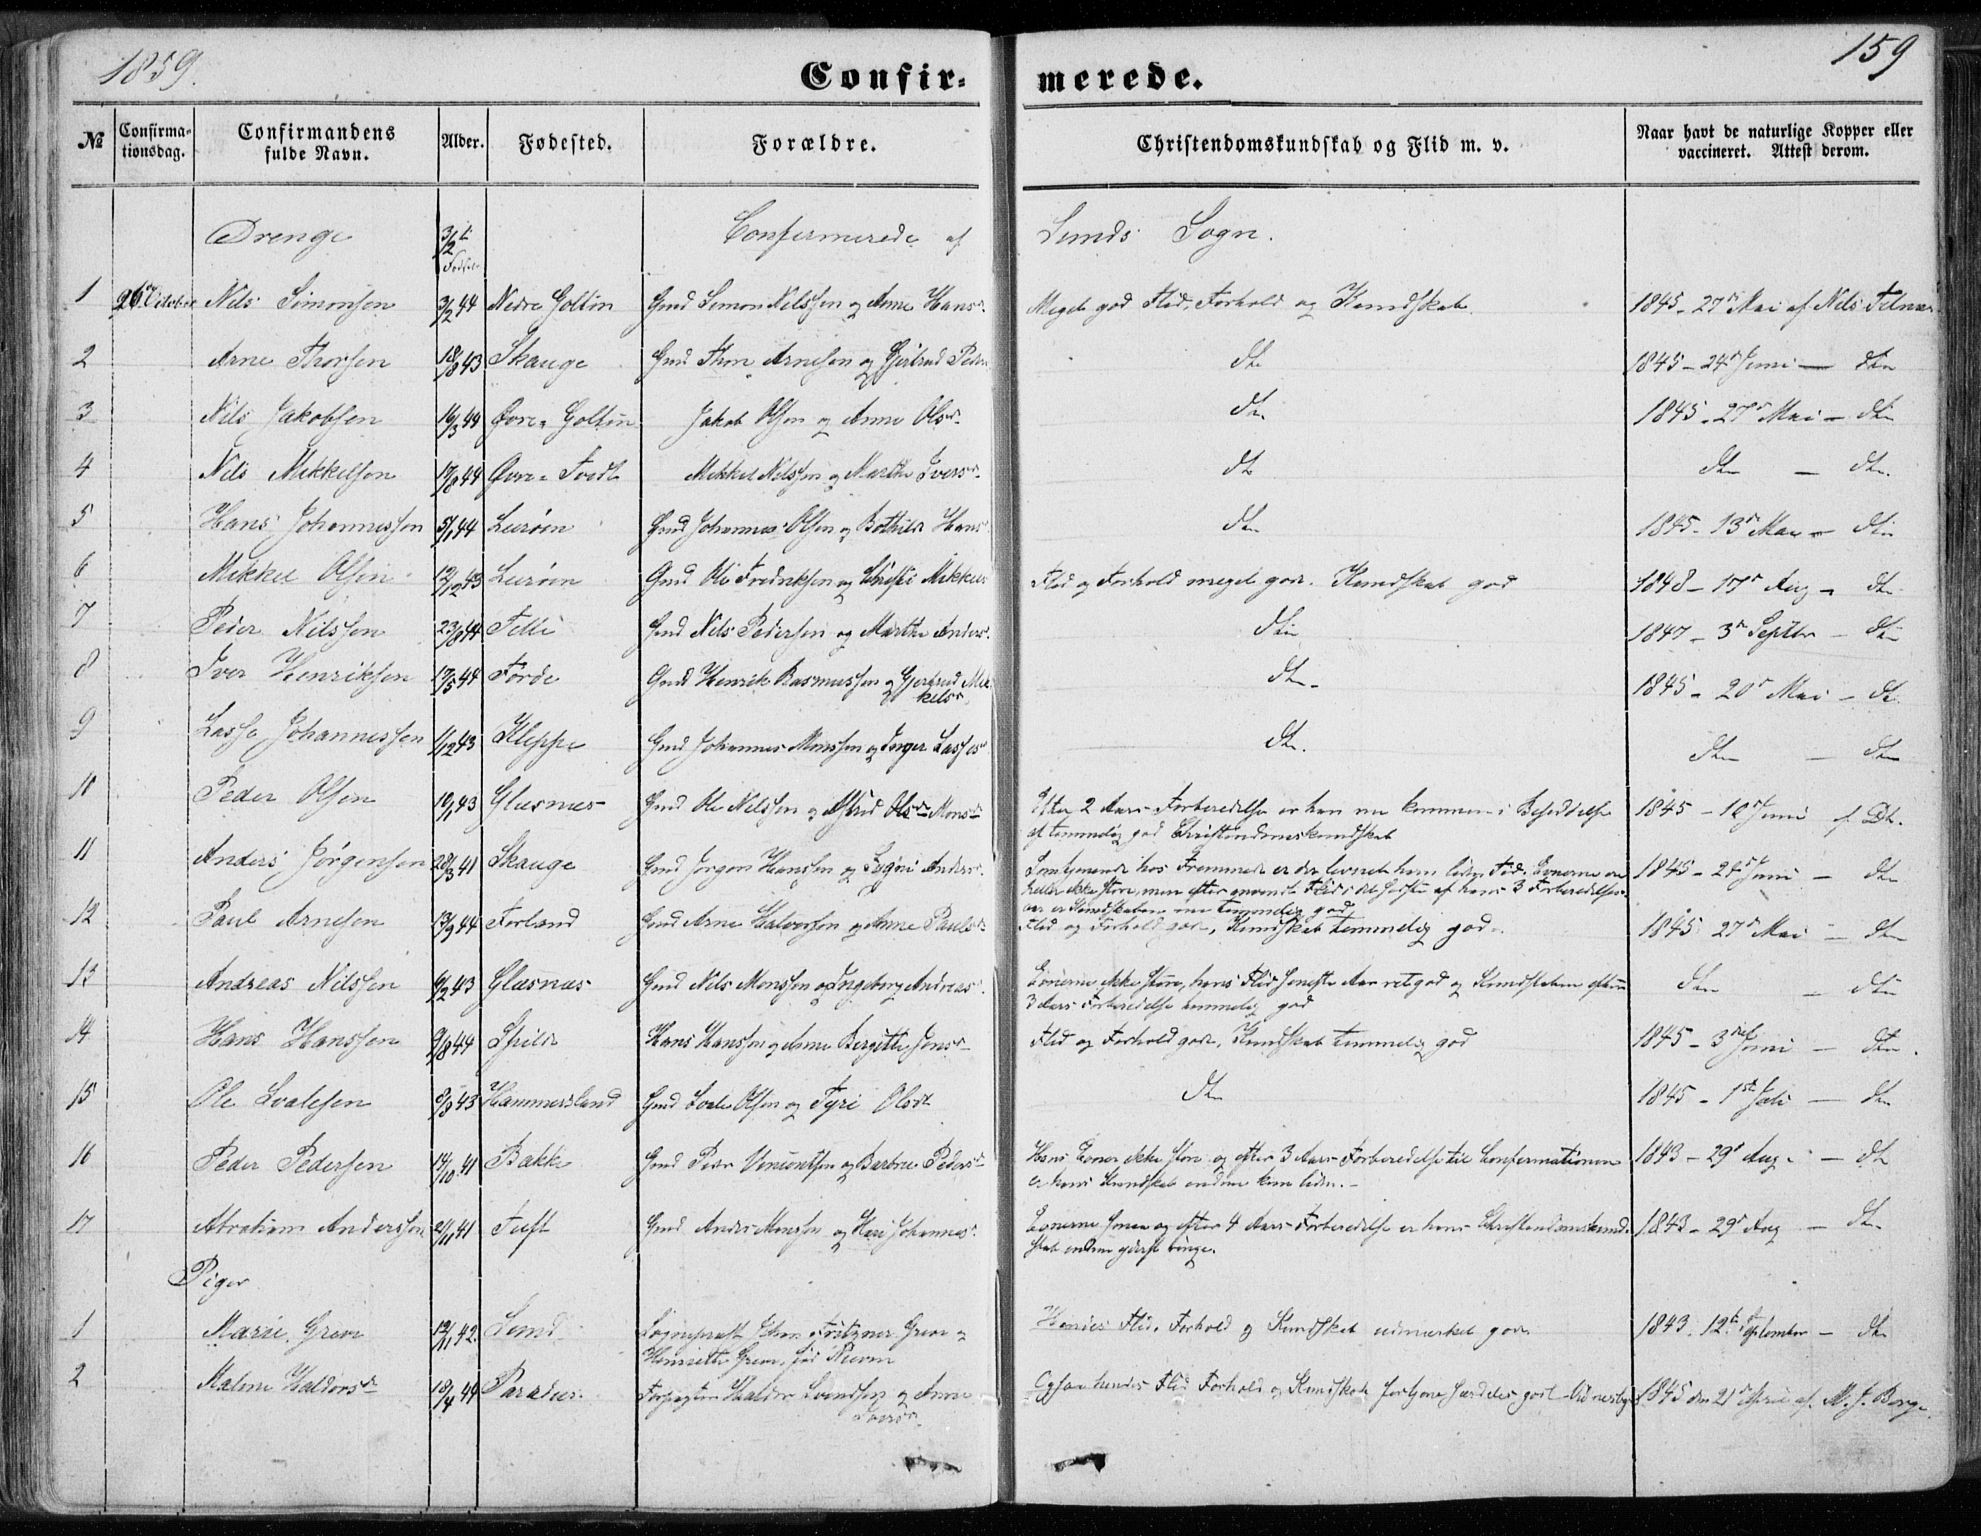 1859.
159
Confir-
merede.
№
Confirma-
tionsdag.
Confirmandens
fulde Navn.
Alder.
Fødested.
Forældre.
Christendomskundskab og Flid m. v.
Naar havt de naturlige Kopper eller
vaccineret. Attest derom.
Drenge Confirmerede af Sunds Sogn.
1 Nils Simonsen 3/2 44 Nedre Goltin Gmd Simon Nilssen og Anne Hansd. Meget god Flid, Forhold og Kundskab. 1845 - 27 Mai af Nils Telnæs
2 Arne Thorsen 18/8 43 Skauge Gmd Thor Arnesen og Gjertrud Peder dto 1845 - 24 Juni - dto
3 Nils Jakobsen 16/3 44 Øvre-Goltin Jakob Olsen og Anne Olsd. dto 1845 - 27 Mai - dto
4 Nils Mikkelsen 17/8 44 Øvre-Tvedt Mikkel Nilssen og Marthe Iversd. dto dto - dto
5 Hans Johannessen 5/1 44 Lerøen Gmd Johannes Olsen og Bothild Hans dto 1845 - 13 Mai - dto
6 Mikkel Olsen 12/12 43 Lerøen Gmd Ole Fredriksen og Mikkels Flid og Forhold meget god. Kundskab god 1848 - 17 Aug - dto
7 Peder Nilssen 23/8 44 Telle Gmd Nils Pedersen og Marthe Anders. dto 1847 - 3 Septbr - dto
8 Iver Henriksen 17/5 44 Førde Gmd Henrik Rasmussen og Gjertrud Mik
kelsd. dto 1845 - 20 Mai - dto
9 Lasse Johannessen 1/12 43 Kleppe Gmd Johannes Monssen og Inger Lassesd dto. dto - dto
10 Peder Olsen 10/1 43 Glæsnæs Gmd Ole Nilssen og Monsd Efter 2 Aars Forberedelse er han nu kommen i Besiddelse
af temmelig god Christendomskundskab 1845 - 10 Juni - Dto.
11 Anders Jørgensen 28/3 41 Skauge Gmd Jørgen Hanssen og Anders. Somtjenende hos Fremmede er der levnet ham liden Tid. Evnerne ere
heller ikke store, men efter Flid i det sidste af hans 3 Forberedelses-
aar er Kundskaben nu temmelig god 1845 - 24 Juni - dto
12 Paul Arnesen 13/9 44 Forland Gmd Arne Halvorsen og Anne Paulsd. Flid og Forhold god, Kundskab temmelig god. 1845 27 Mai - dto
13 Andreas Nilssen 6/2 43 Glæsnæs Gmd Nils Monssen og Ingeborg Andreas. Evnerne ikke store, hans Flid seneste Aar ret god og Kundskaben efter
3 Aars Forberedelse temmelig god dto - dto
14 Hans Hanssen 9/8 44 Spilde Hans Hanssen og Anne Bergitte Jensd. Flid og Forhold god, Kundskab temmelig god 1845 - 3 Juni - dto.
15 Ole Lvalesen 8/8 43 Hammersland Gmd Olsen og Olsdt dto 1845 - 1st Juli - dto
16 Peder Pedersen 14/10 41 Bakke Gmd Peder Vincentsen og Barbra Pedersd Hans Evner ikke store og efter 3 Aars Forberedelse til Confirmationen
er hans Kundskab endnu kun liden. - 1843 - 29 Aug. - dto
17 Abraham Anderssen 21/11 41 Tuft Gmd Anders Monssen og Kari Johannes. Evnerne smaa og efter 4 Aars Forberedelse er hans Christendomskund-
skab endnu yderst ringe. 1843 - 29 Aug - dto
Piger
1 Marie Greve 12/11 42. Sund Sognepræst Fritzner Greve og
Henriette Greve, født Hendes Flid, Forhold og Kundskab udmærket god. 1843. 12te September - dto
2 Malene Haldorsd 18/4 44 Paradis Forpagter Haldor Svendsen og Anne
Iversd. Ogsaa hendes Flid Forhold og Kundskab fortjene særdeles godt Vidnesbyrd 1845 den 21 April af M. J. Berge